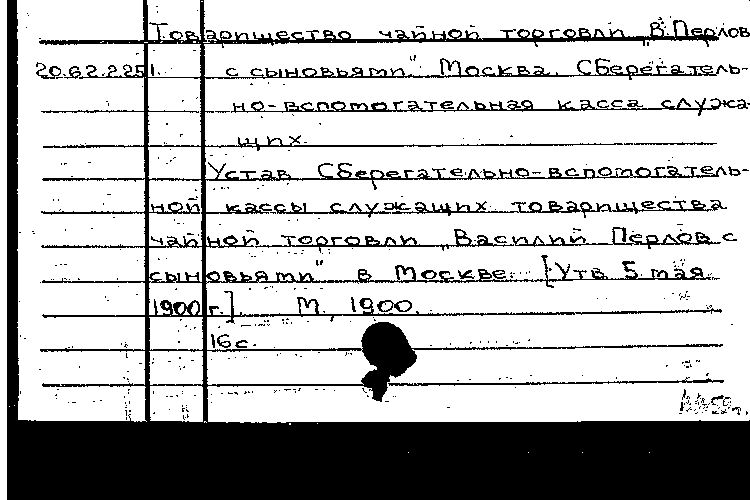 Товарищество чайной торговли „В. Перлов
20.62.2.251. с сыновьями." Москва. Сберегатель-
но-вспомогательная касса служа-
щих.
Устав Сберегательно-вспомогатель-
ной кассы служащих товарищества
чайной торговли „Василий Перлов с
сыновьями" в Москве. [Утв. 5 мая
1900 г.]. М., 1900.
16 с.